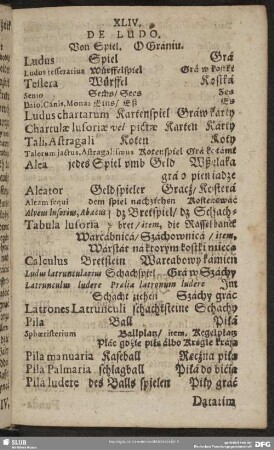 XLIV.
DE LUDO.
Von Spiel. O Graniu.
Ludus Spiel Grá
Ludus tesserarius Würffelspiel Grá w kostki
Tessera Würffel Kostka
Senio Sechs/Sees Ses
Unio, Canis, Monas Eins/Eß Es
Ludus chartarum Kartenspiel Gráw kárty
Chartulæ lusoriæ vel pictæ Karten Kárty
Tali, Astragali Koten Koty
Talorum jactus, Astragalismus Kotenspiel
Alea jedes Spiel vmb Geld
gra o pieniadze
Aleator Geldspieler Gracz/Kosterá
Aleam sequi dem spiel nachziehen Kosterowáć
Alveus lusorius, Abacus dz Bretspiel/dz Schach-
Tabula lusoria bret/item, die Rasselbanck
Warcábnicá/Száchownicá/item,
Wárstat ná ktorym kostki miecą
Calculus Bretstein Warcabowy kámień
Ludus latrunculorius Schachspiel Grá w Száchy
Latrunculus ludere Prælia latronum ludere Im
Schacht ziehen Száchy grác
Latrones Latrunculi schachtsteine Száchy
Pila Ball Piłá
Sphæristerium Ballplan/item, Kegelplatz
Plác gdźie piłą álbo Kręgle graią
Pila manuaria Kaseball Ręczna piłá
Pila Palmaria schlagball Piłá do bićia
Pila ludere des Balls spielen Piły gráć
Datatim
IV.
SLUB